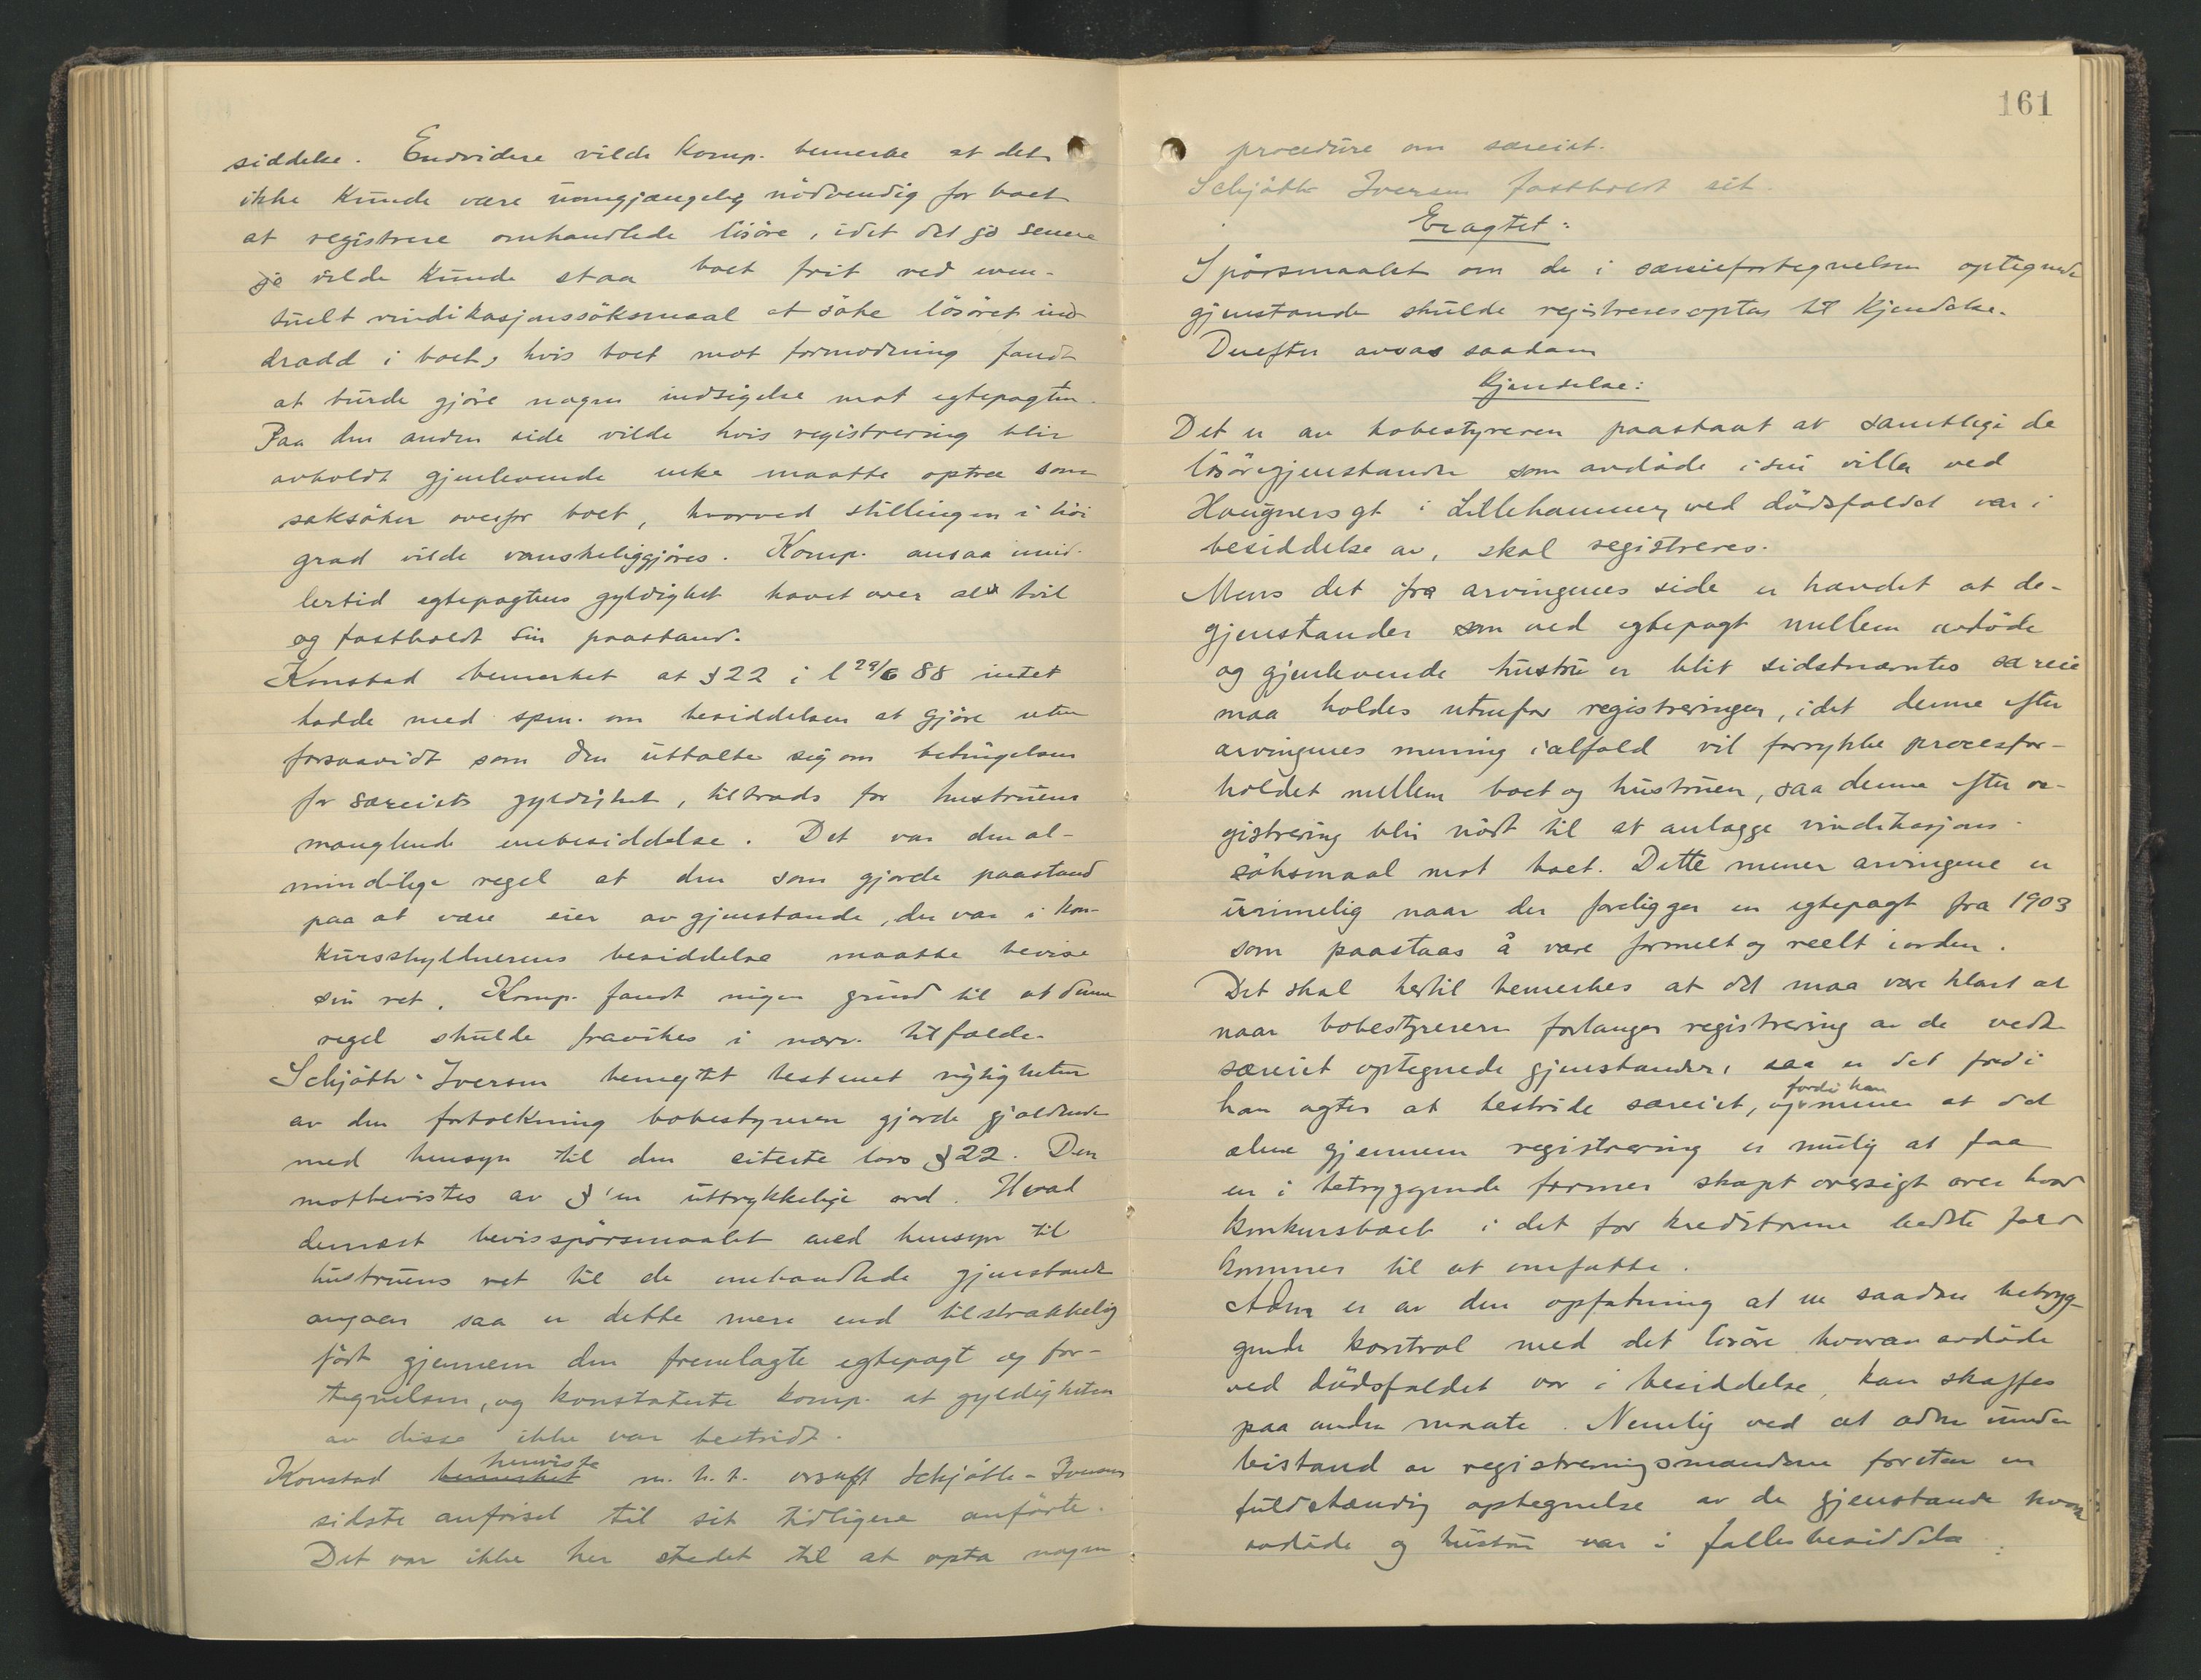 siddelse. Endvidere vilde Komp. bemerke at det
ikke kunde være uomgjængelig nödvendig for boet
at registrere omhandlede lösöre, idet det jo senere
jo vilde kunde staa boet frit ved even-
tuelt vindikasjonssöksmaal at söke lösöret ind
dradd i boet, hvis boet mot formodning fandt
at burde gjöre nogen indsigelse mot egtepagten.
Paa den anden side vilde hvis registrering blir
avholdt gjenlevende enke maatte optræ som
saksöker overfor boet, hvorved stillingen i höi
grad vilde vanskeliggjöres. Komp. ansaa imid-
lertid egtepagtens gyldighet hævet over al tvil
og fastholdt sin paastand.
Konstad bemerket at § 22 i l 29/6 88 intet
hadde med spm. om besiddelsen at gjöre uten
forsaavidt som den uttalte sig om betingelsen
for særeiets gyldighet, tiltrods for hustruens
manglende enebesiddelse. Det var den al-
mindelige regel at den som gjorde paastand
paa at være eier av gjenstande, der var i kon-
kursskyldnerens besiddelse maatte bevise
sin ret. Komp. fandt ingen grund til at denne
regel skulde fravikes i nærv. tilfælde.
Schjöth-Iversen benegtet bestemt rigtigheten
av den fortolkning bobestyreren gjorde gjældende
med hensyn til den citerte lovs § 22. Den
motbevistes av §'en uttrykkelige ord. Hvad
dernæst bevisspörsmaalet med hensyn til
hustruens ret til de omhandlede gjenstande
angaar saa er dette mere end tilstrækkelig
fört gjennem den fremlagte egtepagt og for-
tegnelsen, og konstaterte komp. at gyldigheten
av disse ikke var bestridt.
Konstad bemerket henviste m. h. t. orsaksf Schjöth-Iversens
sidste anförsel til sit tidligere anförte.
Det var ikke her stedet til at opta nogen
161
procedure om særeiet.
Schjöth Iversen fastholdt sit.
Eragtet:
Spörsmaalet om de i særeiefortegnelsen optegnede
gjenstande skulde registreres optas til kjendelse.
Derefter avsas saadan
Kjendelse:
Det er av bobestyreren paastaat at samtlige de
lösöregjenstande som avdöde i sin villa ved
Haugnersgt i Lillehammer ved dödsfaldet var i
besiddelse av, skal registreres.
Mens det fra arvingenes side er hævdet at de
gjenstander som ved egtepagt mellem avdöde
og gjenlevende hustru er blit sidstnævntes særeie
maa holdes utenfor registreringen, idet denne efter
arvingenes mening ialfald vil forrykke procesfor-
holdet mellem boet og hustruen, saa denne efter re-
gistrering blir nödt til at anlægge vindikasjons-
söksmaal mot boet. Dette mener arvingene er
urimelig naar der foreligger en egtepagt fra 1903
som paastaas å være formelt og reelt iorden.
Det skal hertil bemerkes at det maa være klart at
naar bobestyreren forlanger registrering av de ved
særeiet optegnede gjenstander, saa er det fordi
han agter at bestride særeiet, og fordi han mener at det
alene gjennem registrering er mulig at faa
en i betryggende former skapt oversigt over hvad
konkursboet i det for kreditorene bedste fald
kommer til at omfatte.
Adm er av den opfatning at en saadan betryg-
gende kontrol med det lösöre hvorav avdöde
ved dödsfaldet var i besiddelse, kan skaffes
paa anden maate. Nemlig ved at adm under
bistand av registreringsmændene foretar en
fuldstændig optegnelse av de gjenstande hvorav
avdöde og hustru var i fællesbesiddelse